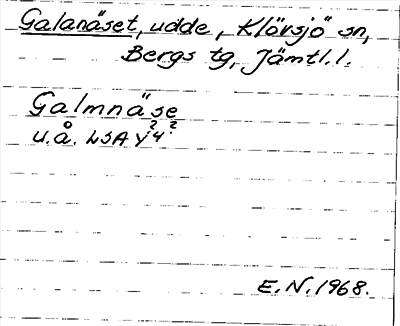 Galanäset, udde, Klövsjö sn,
Bergs tg, Jämtl.l.
Galmnäse
u.å. LSA Y 4
E.N. 1968.